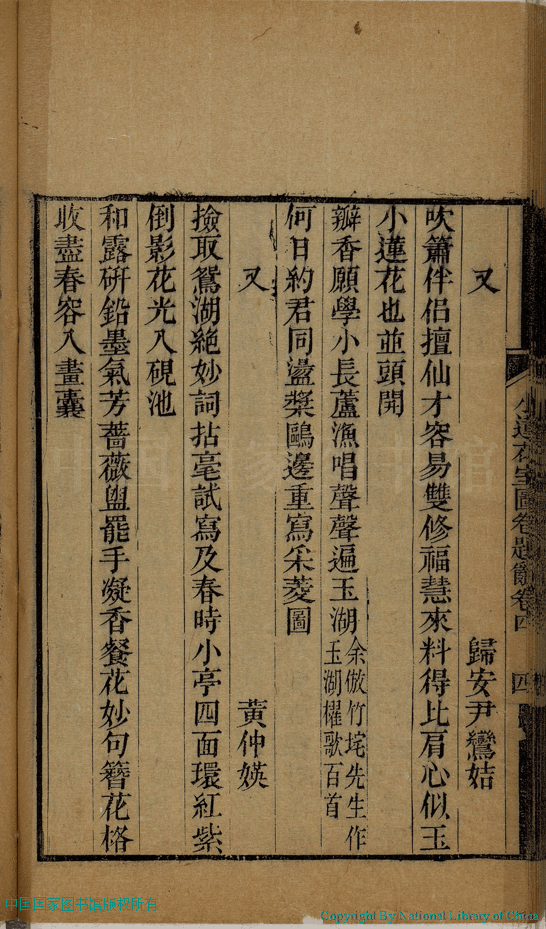 小蓮花室圖卷題辭卷四　四
又　歸安尹鸞姞
吹簫伴侶擅仙才容易雙修福慧來料得比肩心似玉
小蓮花也並頭開
瓣香願學小長蘆漁唱聲聲遍玉湖余倣竹垞先生作玉湖櫂歌百首
何日約君同盪槳鷗邊重寫采菱圖
又　黃仲媖
撿取鴛湖絕妙詞拈毫試寫及春時小亭四面環紅紫
倒影花光入硯池
和露研鉛墨氣芳薔薇盥罷手凝香餐花妙句簪花格
收盡春容入畫囊
中国国家图书馆版权所有
Copyright By National Library of China